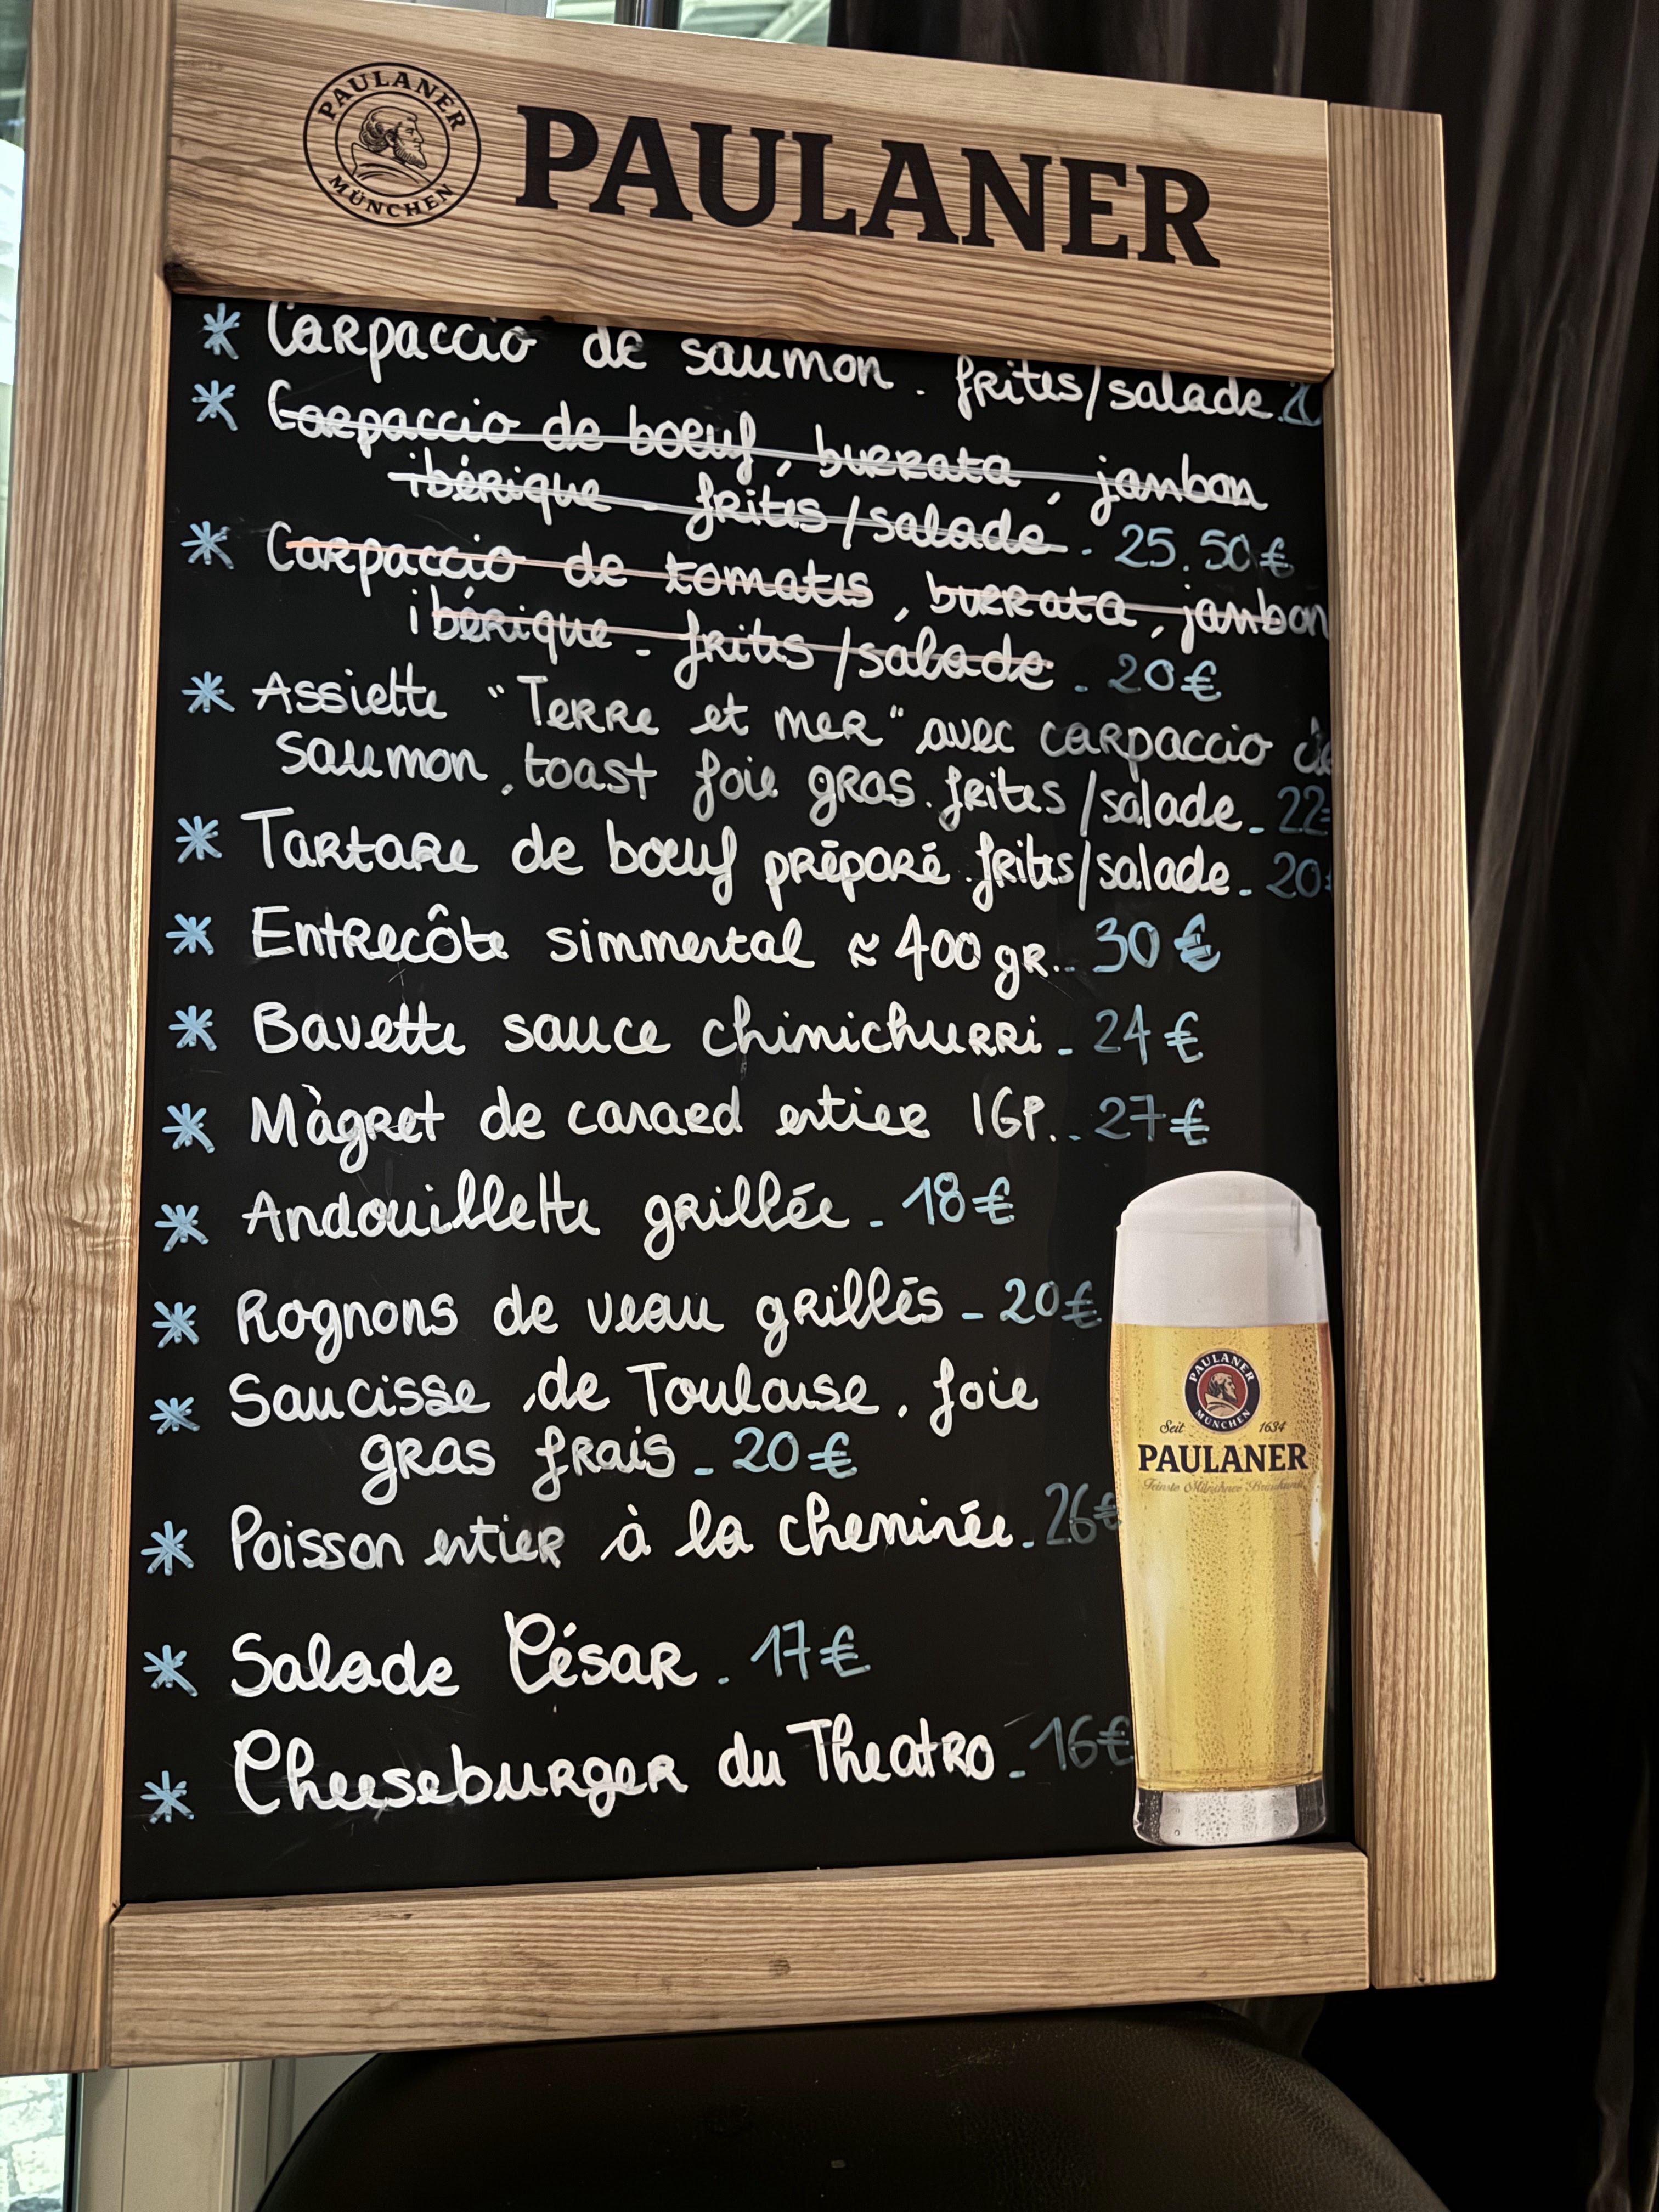 PAULANER
MÜNCHEN
PAULANER
* Carpaccio de saumon. frites/salade.
* Carpaccio de boeuf, burrata, jambon
ibérique - frites/salade. 25.50€
* Carpaccio de tomates, burrata, jambon
ibérique - frites/salade. 20€
* Assiette "Terre et mer" avec carpaccio de
saumon, toast foie gras. frites/salade. 22
* Tartare de boeuf préparé. frites/salade. 20
* Entrecôte simmental ≈ 400 gr.. 30€
* Bavette sauce chimichurri. 24€
* Màgret de canard entier IGP.. 27€
* Andouillette grillée. 18€
* Rognons de veau grillés - 20€
* Saucisse de Toulouse, foie
gras frais - 20€
* Poisson entier à la cheminée. 26€
* Salade César. 17€
* Cheeseburger du Theatro. 16€
PAULANER
MÜNCHEN
Seit 1634
PAULANER